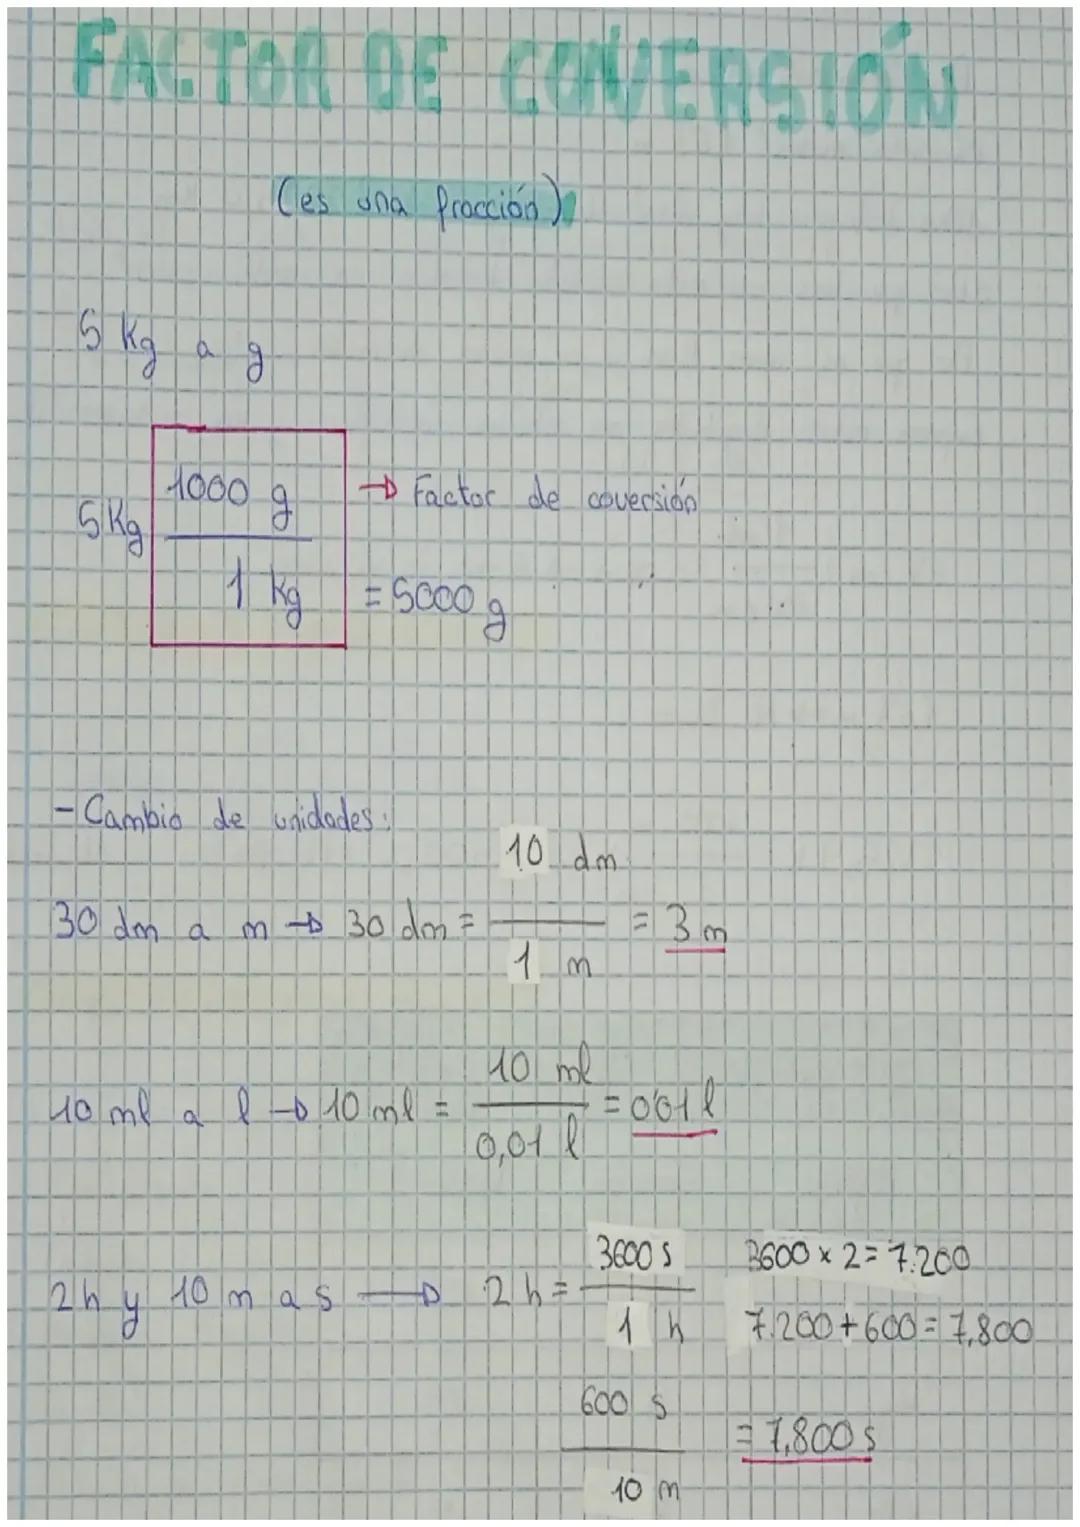 FACTOR DE CONVERSIÓN
(es una fracción)
5 Kg a g
5 Kg 1000 g → Factor de coversión
1 Kg = 5000 g
- Cambio de unidades:
10 dm
30 dm a m → 30 dm = = 3 m
1 m
10 ml
10 ml a l → 10 ml = = 0'01 l
0,01 l
3600 s 3600 x 2 = 7.200
2 h y 10 m a s → 2 h =
1 h 7.200 + 600 = 7,800
600 s
= 7,800 s
10 m